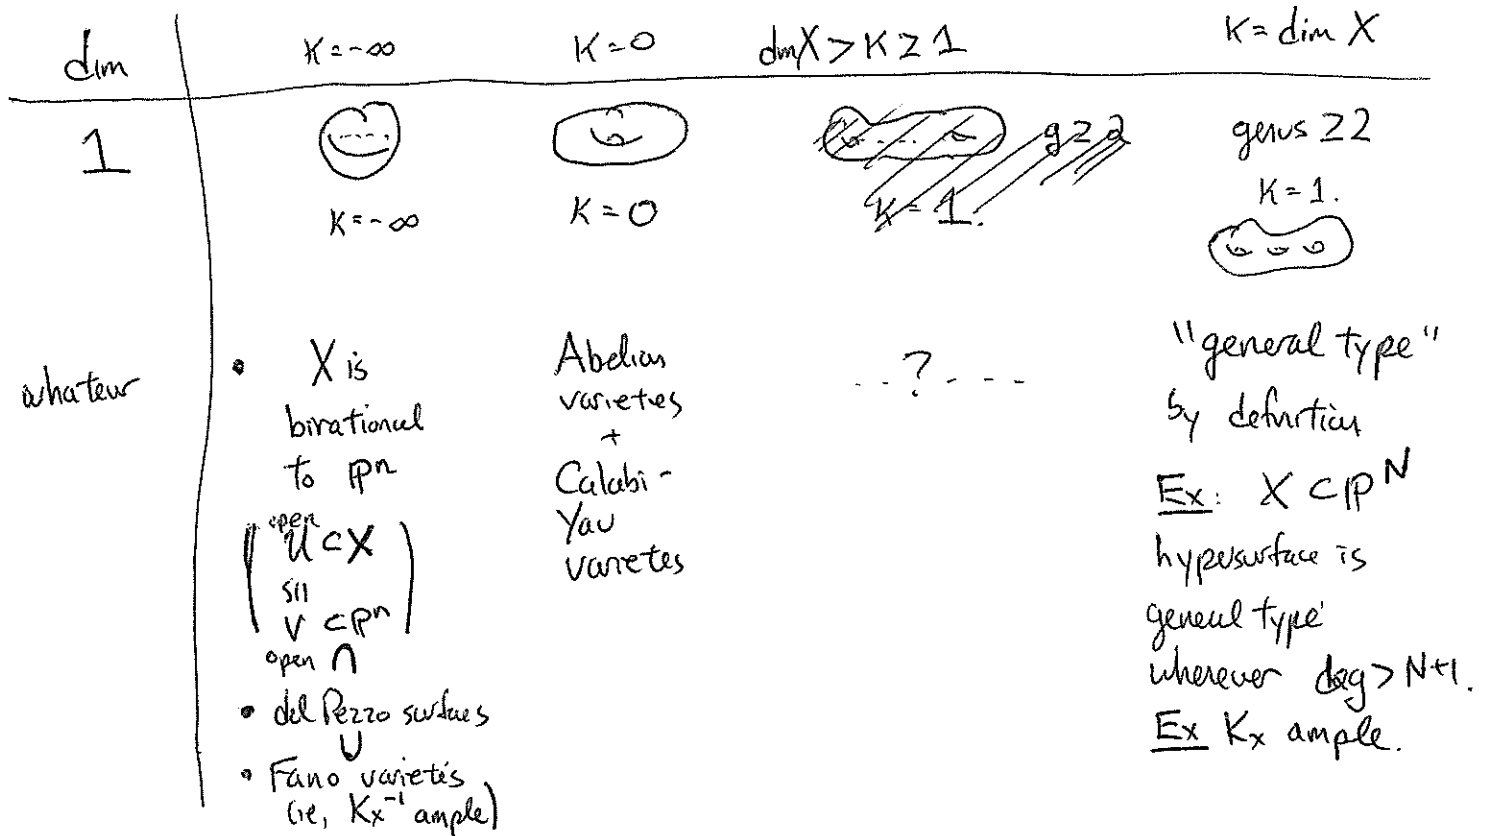 dim κ=-∞ κ=0 dim X > κ ≥ 1 κ = dim X
1 g ≥ 2 genus ≥ 2
κ=-∞ κ=0 κ=1. κ=1.
whatever
• X is
birational
to ℙⁿ
open
U ⊂ X
SII
V ⊂ ℙⁿ
open ∩
• del Pezzo surfaces
∪
• Fano varieties
(ie, K_X⁻¹ ample)
Abelian
varieties
+
Calabi-
Yau
varietes
..?....
"general type"
by definition
Ex: X ⊂ ℙᴺ
hypersurface is
general type
whenever deg > N+1.
Ex K_X ample.